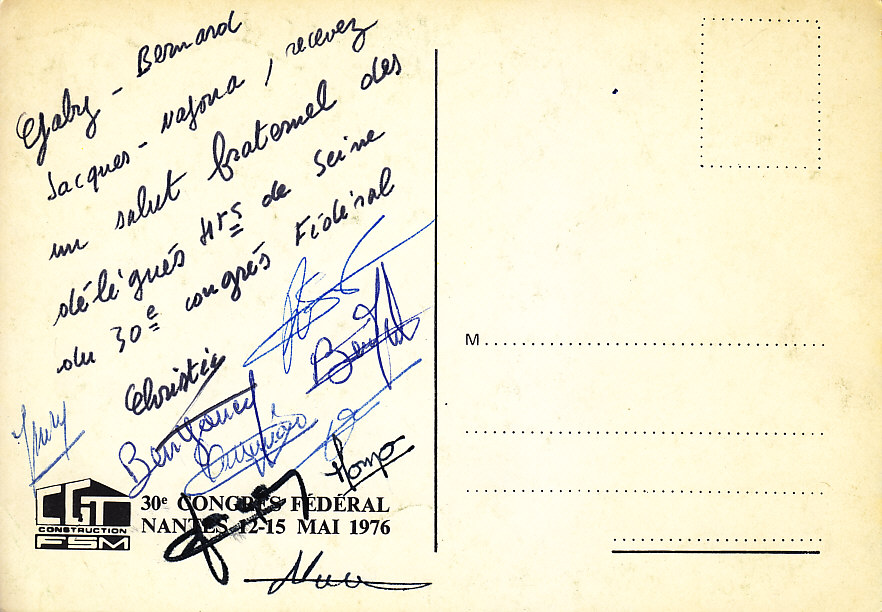 Gaby - Bernard
Jacques - Nagoua, recevez
un salut fraternel des
délégués Hts de Seine
du 30e congrès Fédéral
Christie
M
CGT
CONSTRUCTION
FSM
30e CONGRÈS FÉDÉRAL
NANTES 12-15 MAI 1976